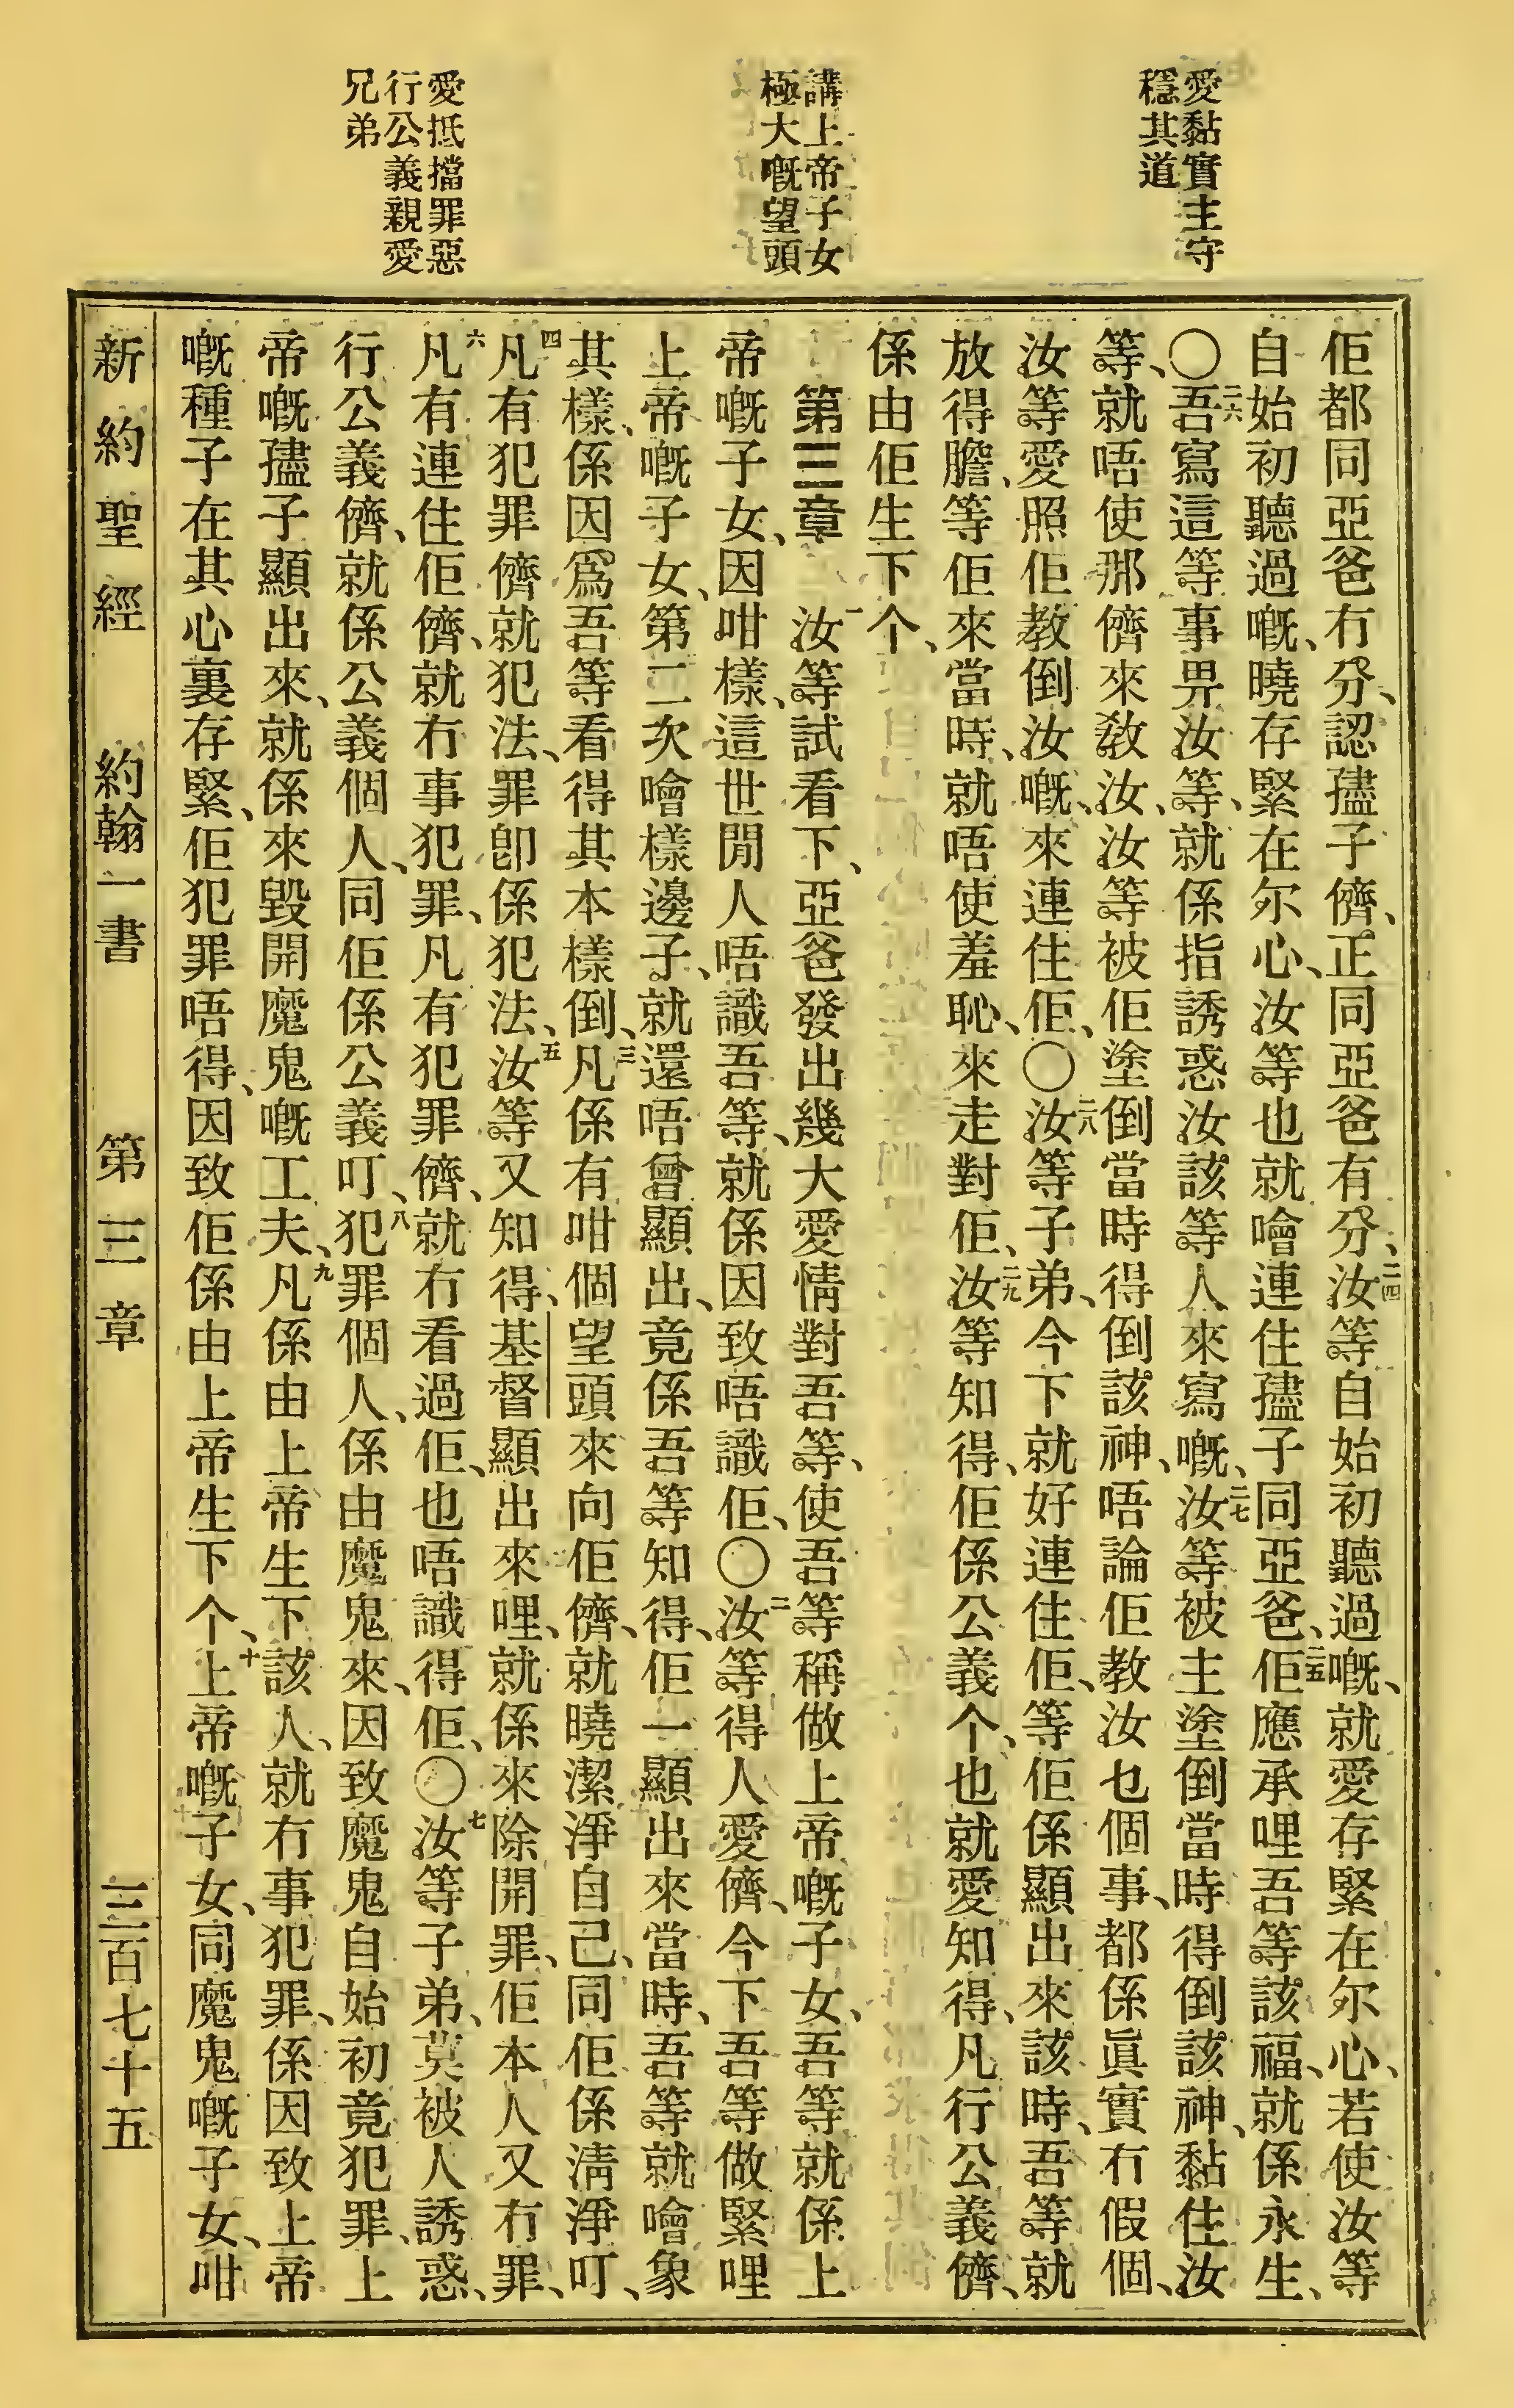 愛黏實主守
穩其道
講上帝子女
極大嘅望頭
愛抵擋罪惡
行公義親愛
兄弟
佢都同亞爸冇分、認孻子儕、正同亞爸有分、二四汝等自始初聽過嘅、就愛存緊在尔心、若使汝等
自始初聽過嘅、曉存緊在尔心、汝等也就噲連住孻子同亞爸、二五佢應承哩吾等該福、就係永生、
〇二六吾寫這等事畀汝等、就係指誘惑汝該等人來寫嘅、二七汝等被主塗倒當時得倒該神、黏住汝
等、就唔使那儕來敎汝、汝等被佢塗倒當時得倒該神、唔論佢教汝乜個事、都係眞實冇假個、
汝等愛照佢教倒汝嘅、來連住佢、〇二八汝等子弟、今下就好連住佢、等佢係顯出來該時、吾等就
放得膽、等佢來當時、就唔使羞恥、來走對佢、二九汝等知得、佢係公義个、也就愛知得、凡行公義儕、
係由佢生下个、
第三章　一汝等試看下、亞爸發出幾大愛情對吾等、使吾等稱做上帝嘅子女、吾等就係上
帝嘅子女、因咁樣、這世閒人唔識吾等、就係因致唔識佢、〇二汝等得人愛儕、今下吾等做緊哩
上帝嘅子女、第二次噲樣邊子、就還唔曾顯出、竟係吾等知得、佢一顯出來當時、吾等就噲象
其樣、係因爲吾等看得其本樣倒、三凡係有咁個望頭來向佢儕、就曉潔淨自己、同佢係淸淨叮、
四凡有犯罪儕就犯法、罪卽係犯法、五汝等又知得、基督顯出來哩、就係來除開罪、佢本人又冇罪、
六凡有連住佢儕、就冇事犯罪、凡有犯罪儕、就冇看過佢、也唔識得佢、〇七汝等子弟、莫被人誘惑、
行公義儕、就係公義個人、同佢係公義叮、八犯罪個人、係由魔鬼來、因致魔鬼自始初竟犯罪、上
帝嘅孻子顯出來、就係來毀開魔鬼嘅工夫、九凡係由上帝生下該人、就冇事犯罪、係因致上帝
嘅種子在其心裏存緊、佢犯罪唔得、因致佢係由上帝生下个、十上帝嘅子女、同魔鬼嘅子女、咁
新約聖經　約翰一書　第三章　三百七十五